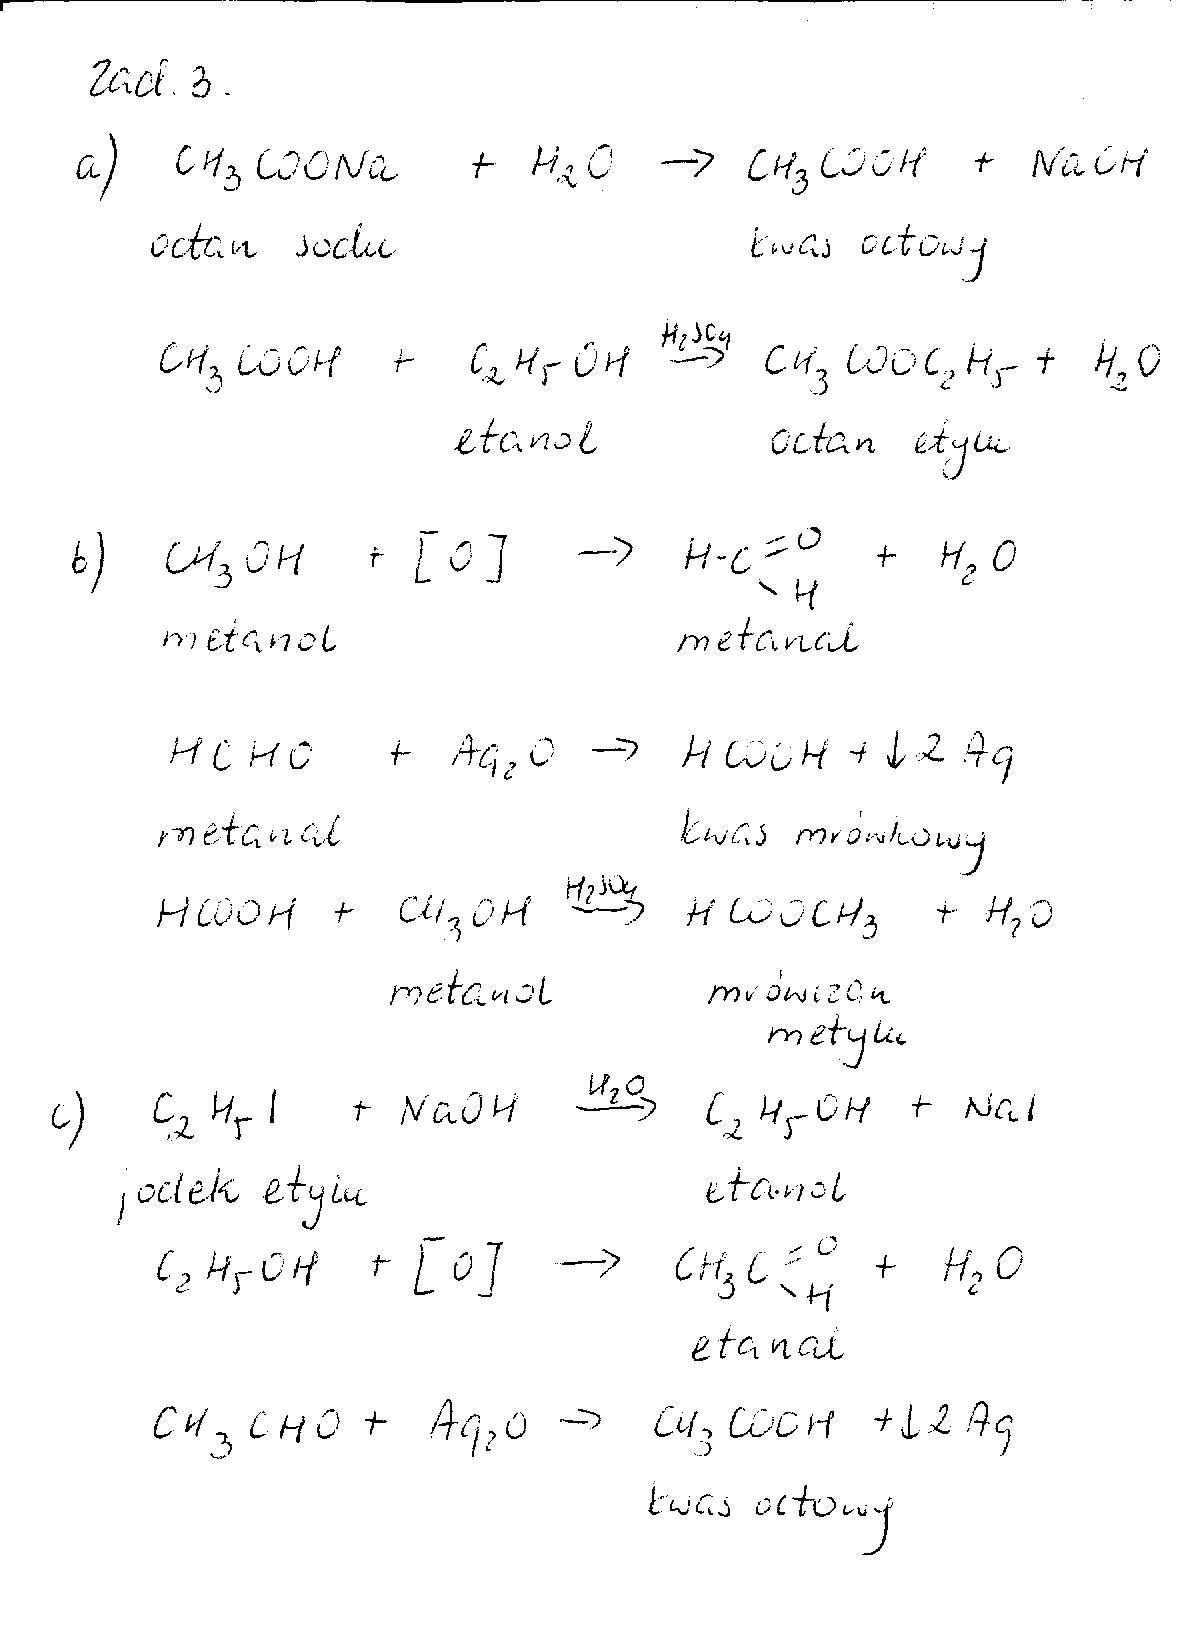 Zad. 3.
a) CH₃COONa + H₂O → CH₃COOH + NaOH
octan sodu kwas octowy
CH₃COOH + C₂H₅OH H₂SO₄→ CH₃COOC₂H₅ + H₂O
etanol octan etylu
b) CH₃OH + [O] → H-C=O\H + H₂O
metanol metanal
HCHO + Ag₂O → HCOOH + ↓2Ag
metanal kwas mrówkowy
HCOOH + CH₃OH H₂SO₄→ HCOOCH₃ + H₂O
metanol mrówczan
metylu
c) C₂H₅I + NaOH H₂O→ C₂H₅OH + NaI
jodek etylu etanol
C₂H₅OH + [O] → CH₃C=O\H + H₂O
etanal
CH₃CHO + Ag₂O → CH₃COOH + ↓2Ag
kwas octowy